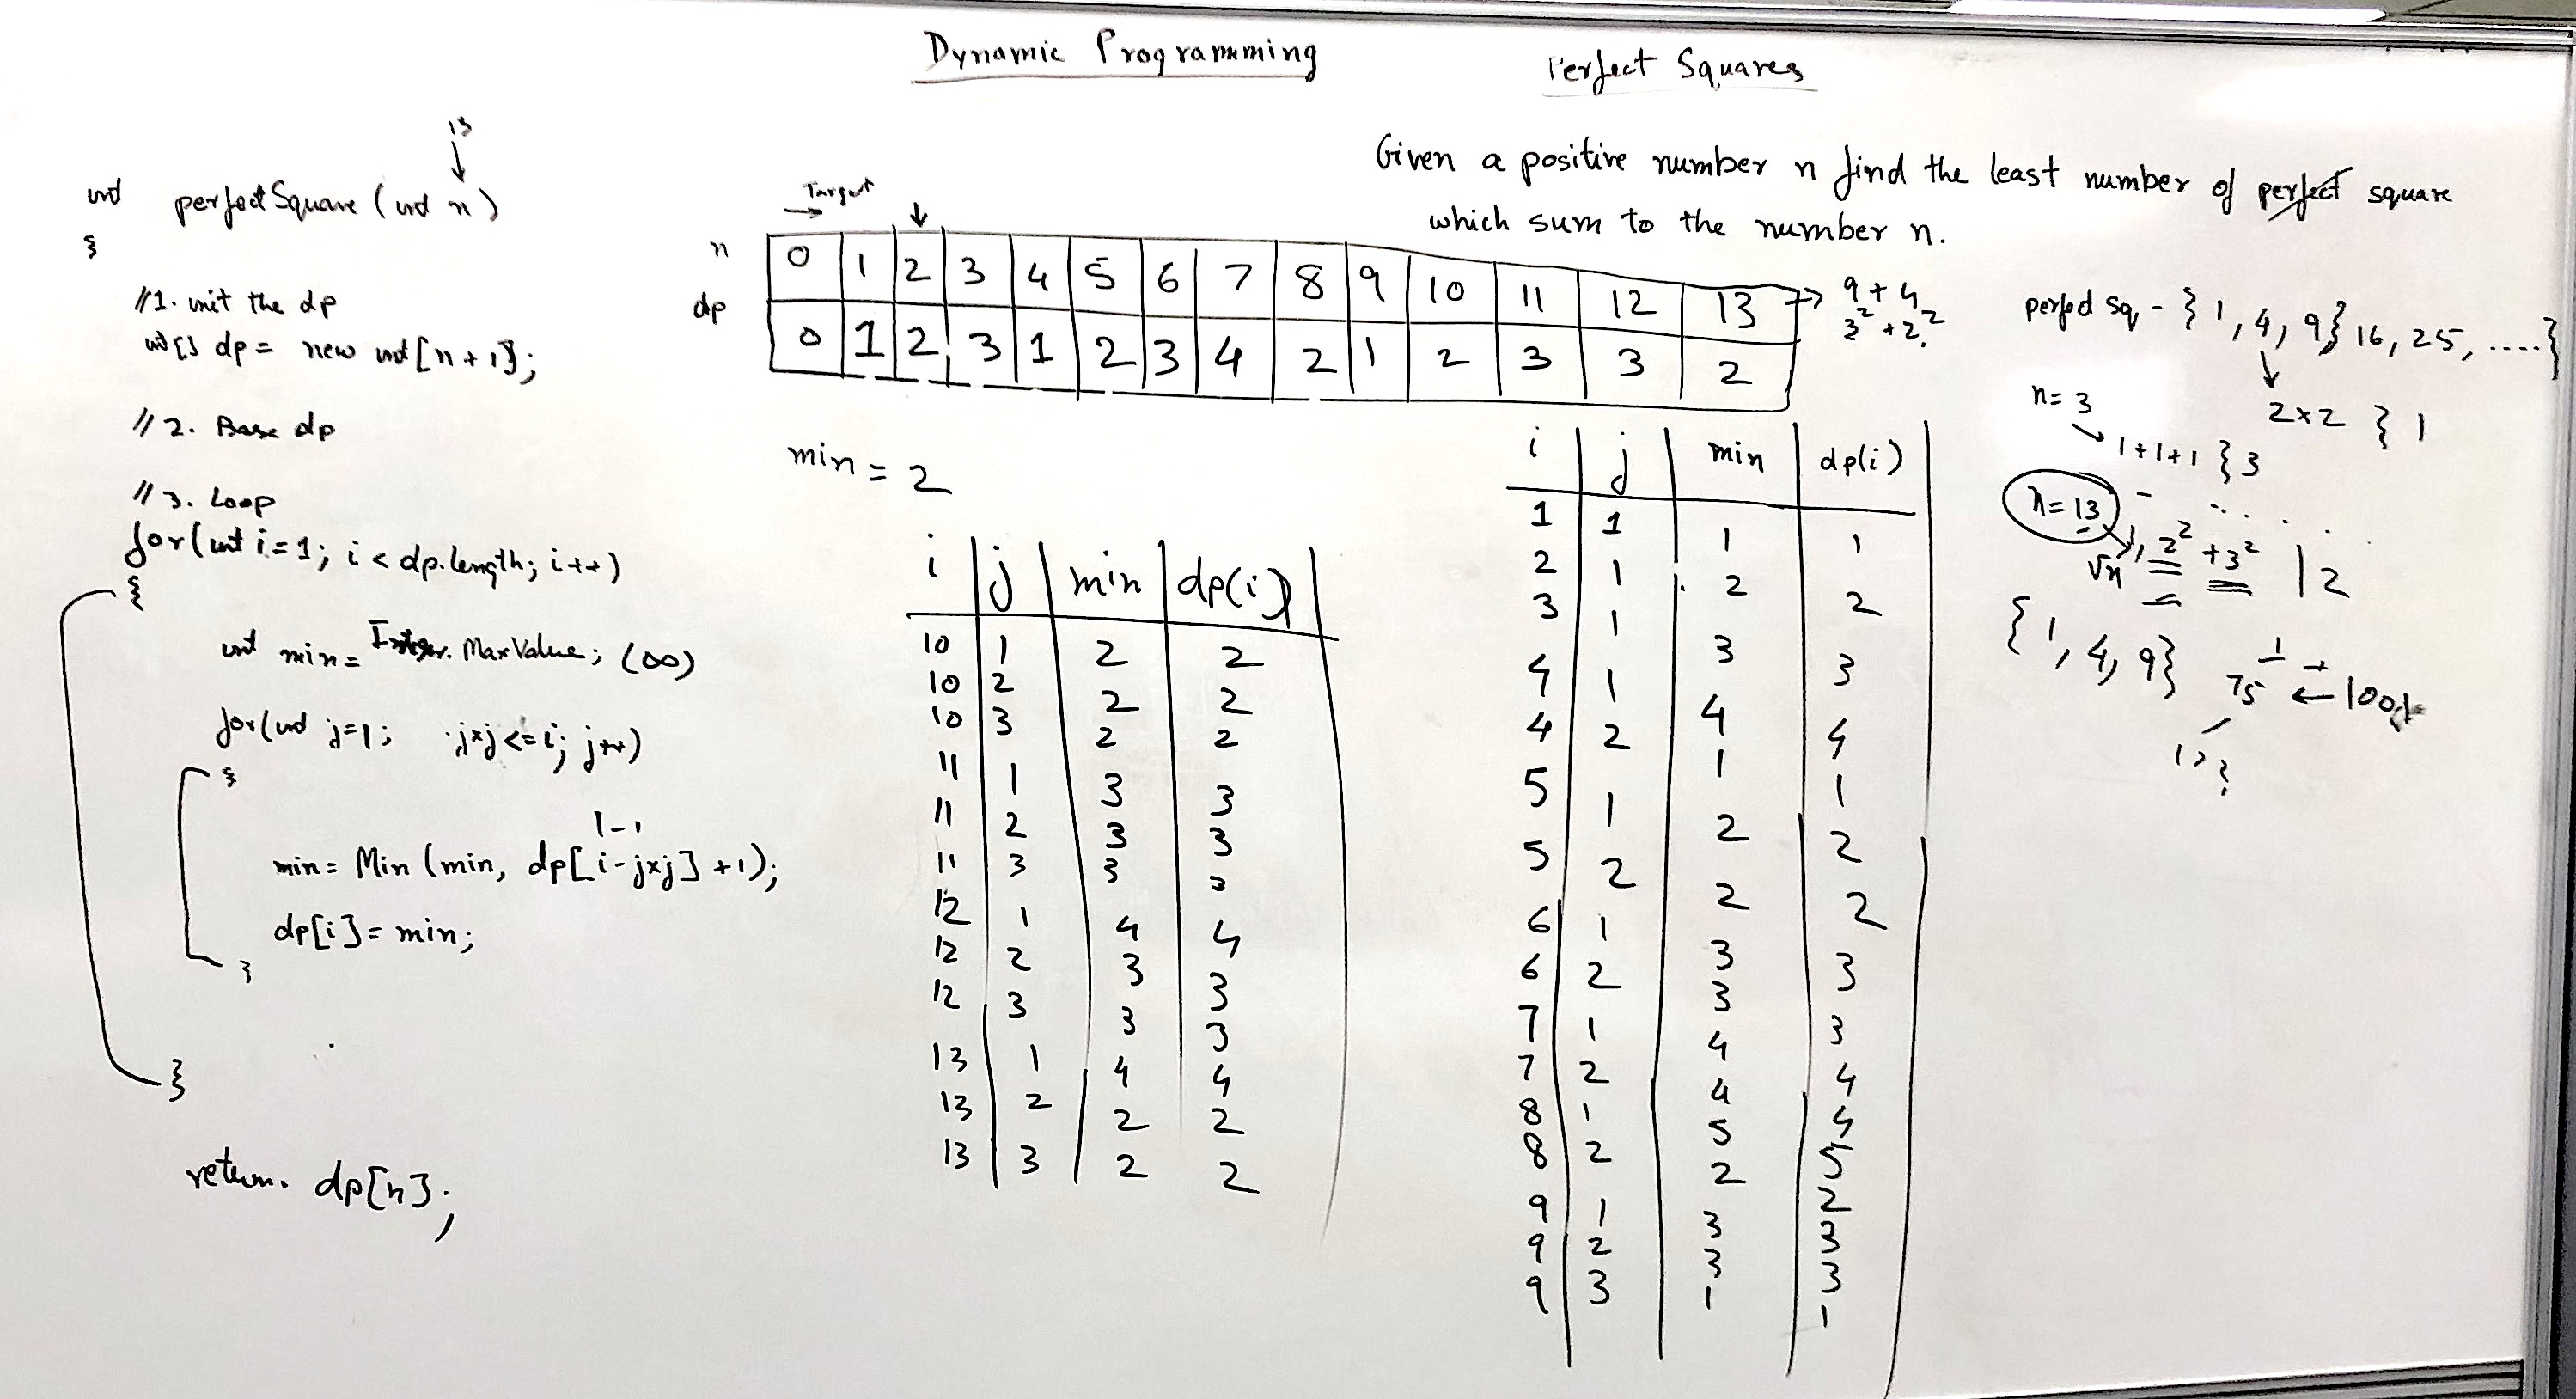 Dynamic Programming
Perfect Squares
Given a positive number n find the least number of perfect square
which sum to the number n.
13
int perfectSquare (int n)
{
//1. init the dp
int[] dp = new int[n+1];
// 2. Base dp
// 3. Loop
for(int i=1; i < dp.length; i++)
{
int min = Integer.MaxValue; (∞)
for(int j=1; j*j<=i; j++)
{
1-1
min = Min (min, dp[i-j*j] +1);
dp[i] = min;
}
}
return dp[n];
Target
n 0 1 2 3 4 5 6 7 8 9 10 11 12 13
dp 0 1 2 3 1 2 3 4 2 1 2 3 3 2
9 + 4
3² + 2²
min = 2
i j min dp(i)
10 1 2 2
10 2 2 2
10 3 2 2
11 1 3 3
11 2 3 3
11 3 3 3
12 1 4 4
12 2 3 3
12 3 3 3
13 1 4 4
13 2 2 2
13 3 2 2
i j min dp(i)
1 1 1 1
2 1 2 2
3 1 3 3
4 1 4 4
4 2 1 1
5 1 2 2
5 2 2 2
6 1 3 3
6 2 3 3
7 1 4 4
7 2 4 4
8 1 5 5
8 2 2 2
9 1 3 3
9 2 3 3
9 3 1 1
perfed sq - { 1, 4, 9} 16, 25, ....}
2×2 } 1
n = 3
1+1+1 } 3
n = 13
√n 1, 2² + 3² | 2
{ 1, 4, 9}
75 ← 100